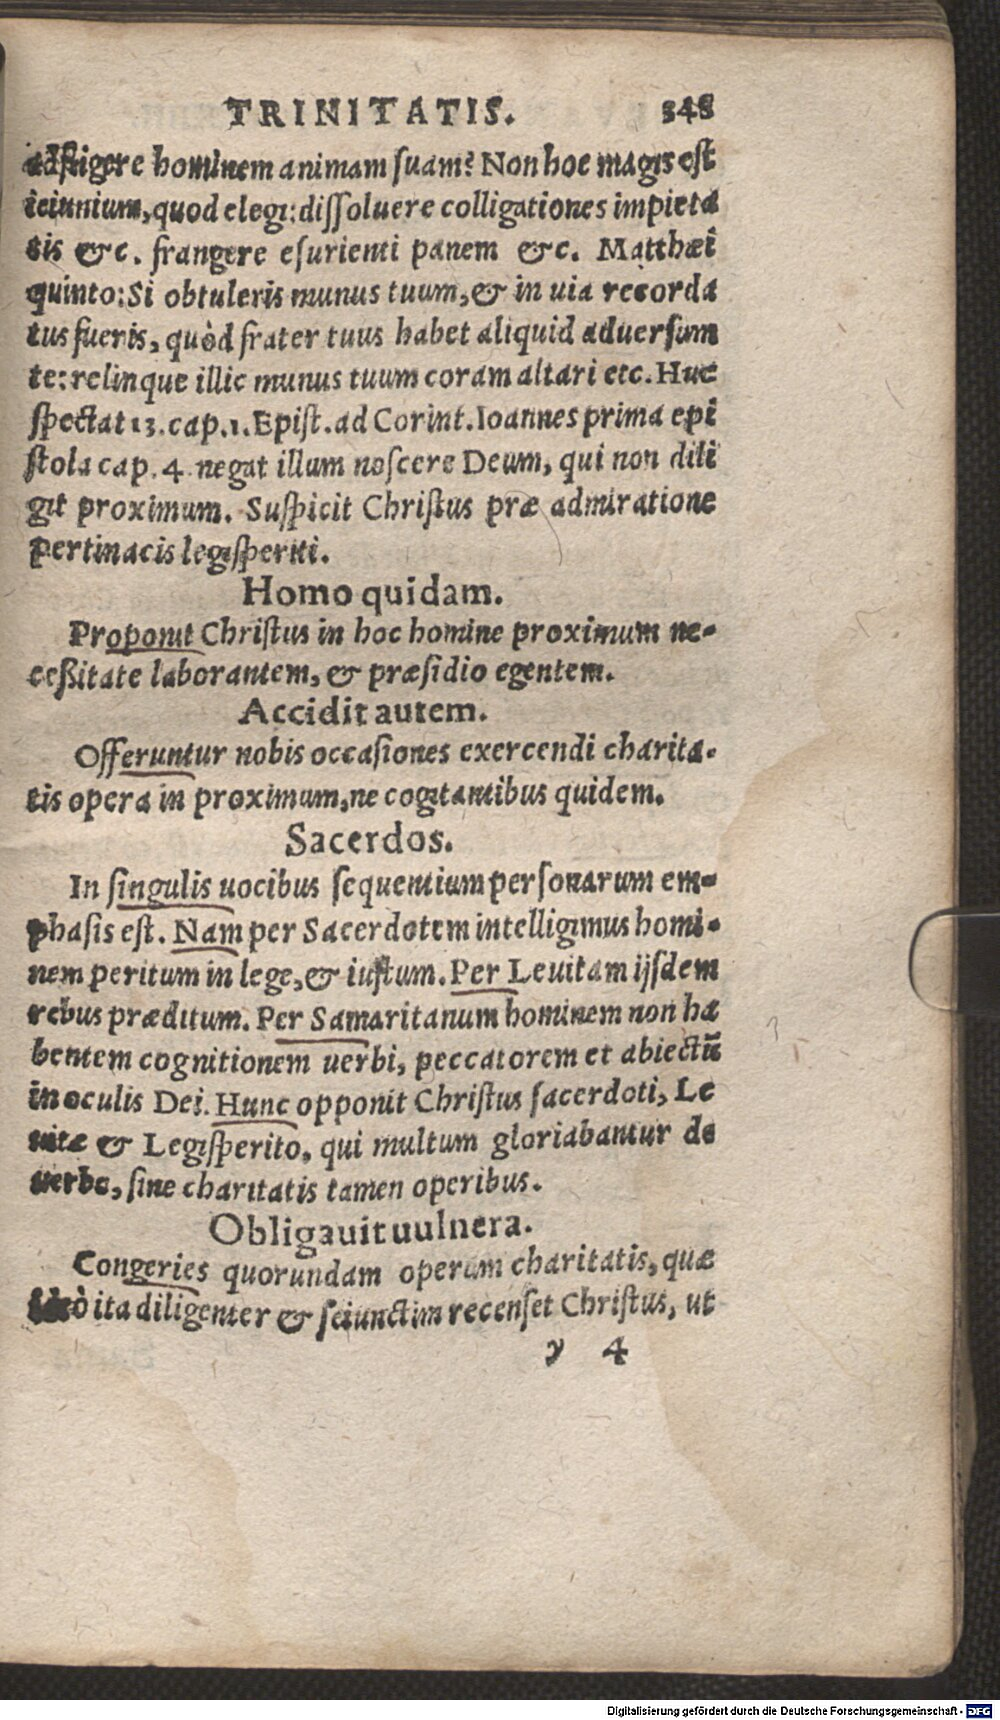 TRINITATIS. 348
adfligere hominem animam suam? Non hoc magis est
ieiunium, quod elegi: dissoluere colligationes impieta
tis &c. frangere esurienti panem &c. Matthæi
quinto: Si obtuleris munus tuum, & in uia recorda
tus fueris, quòd frater tuus habet aliquid aduersum
te: relinque illic munus tuum coram altari etc. Huc
spectat 13. cap. 1. Epist. ad Corint. Ioannes prima epi
stola cap. 4. negat illum noscere Deum, qui non dili
git proximum. Suspicit Christus præ admiratione
pertinacis legisperiti.
Homo quidam.
Proponit Christus in hoc homine proximum ne-
ceßitate laborantem, & præsidio egentem.
Accidit autem.
Offeruntur nobis occasiones exercendi charita-
tis opera in proximum, ne cogitantibus quidem.
Sacerdos.
In singulis uocibus sequentium personarum em-
phasis est. Nam per Sacerdotem intelligimus homi-
nem peritum in lege, & iustum. Per Leuitam ijsdem
rebus præditum. Per Samaritanum hominem non ha
bentem cognitionem uerbi, peccatorem et abiectũ
in oculis Dei. Hunc opponit Christus sacerdoti, Le
uitæ & Legisperito, qui multum gloriabantur de
uerbo, sine charitatis tamen operibus.
Obligauit uulnera.
Congeries quorundam operum charitatis, quæ
ita diligenter & seiunctim recenset Christus, ut
y 4
Digitalisierung gefördert durch die Deutsche Forschungsgemeinschaft - DFG